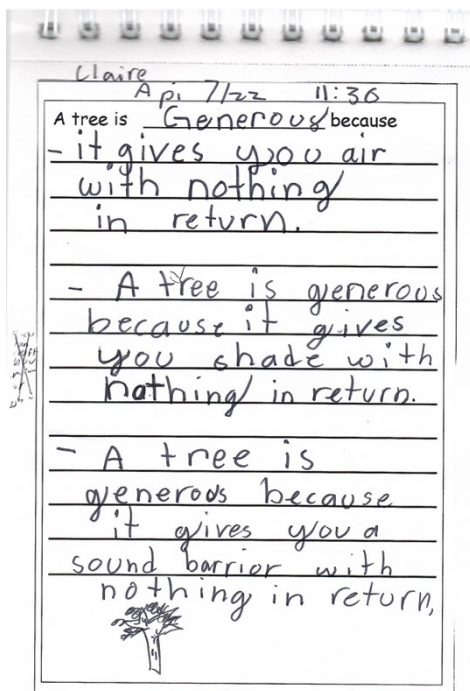 Claire
Api 7/22 11:36
A tree is Generous because
- it gives you air
with nothing
in return.
- A tree is generous
because it gives
you shade with
nothing in return.
- A tree is
generods because
it gives you a
sound barrior with
nothing in return,